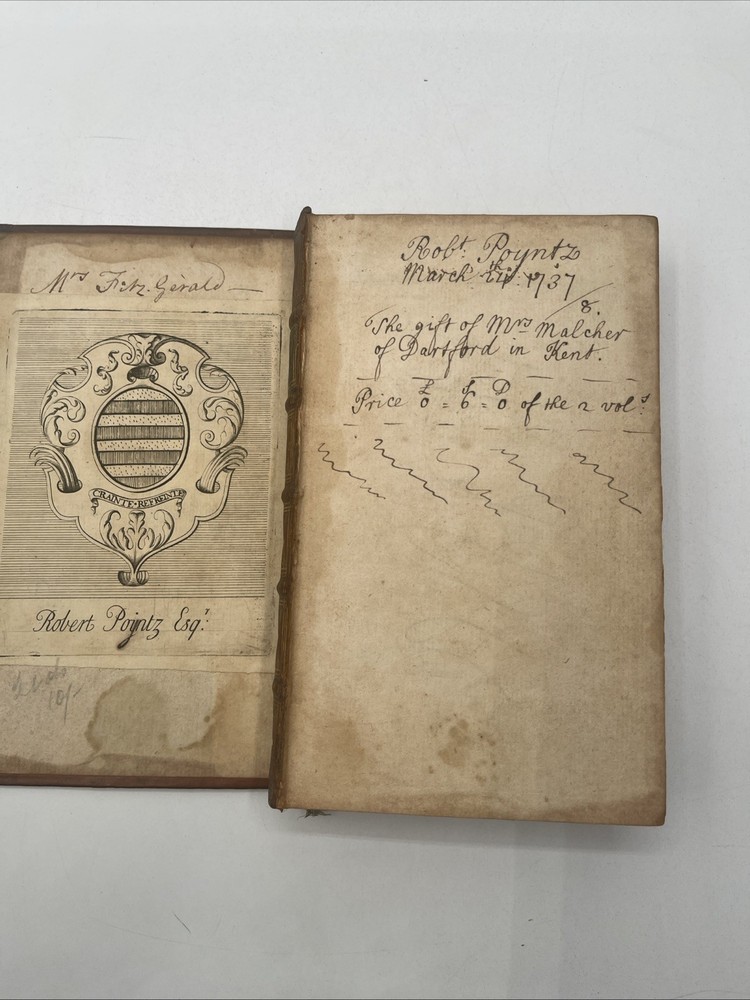 Mrs Fitz. Gerald —
CRAINTE • REFREINTE
Robert Poyntz Esqr.
2 vols
10/-
Robt. Poyntz
March 1737/8.
The gift of Mrs Malcher
of Dartford in Kent.
£ S D
Price 0 = 6 = 0 of the 2 vols.